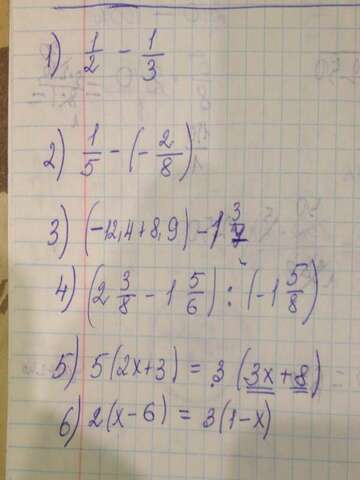 1) 1/2 - 1/3
2) 1/5 - (-2/8)
3) (-12,4+8,9) - 1 3/7
4) (2 3/8 - 1 5/6) : (-1 5/8)
5) 5(2x+3) = 3(3x+8)
6) 2(x-6) = 3(1-x)